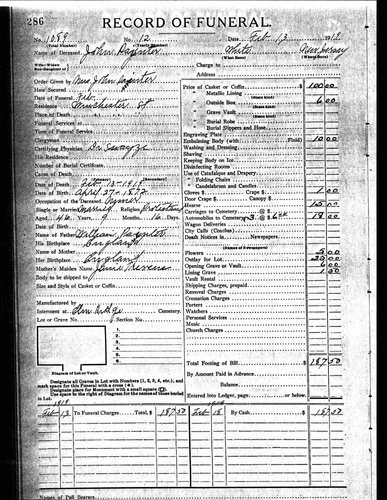 286 RECORD OF FUNERAL.
No. 1089 No. 12 Date, Feb 13 191
(Total Number) (Yearly Number)
Name of Deceased John Paynter White New Jersey
(What Race) (Where Born)
Charge to
Address
Order Given by Mrs John Paynter
How Secured
Date of Funeral Feb
Residence Manchester St
Place of Death
Funeral Services at
Time of Funeral Service
Clergyman
Certifying Physician Dr
His Residence
Number of Burial Certificate
Cause of Death
Date of Death Feb 13-1919
Date of Birth April 27-1872
Occupation of the Deceased
Single or Married Married Religion
Aged 46 Years 9 Months 16 Days
Name of Father William Paynter
His Birthplace England
Name of Mother
Her Birthplace England
Mother's Maiden Name
Body to be shipped to
Size and Style of Casket or Coffin
Manufactured by
Interment at Elm Ridge Cemetery
Lot or Grave No. Section No.
1.
2.
3.
4.
5.
6.
Diagram of Lot or Vault.
Designate all Graves in Lot with Numbers (1, 2, 3, 4, etc.), and
mark space for this Funeral with a cross
Place Monument with a small square
Use space to the right of Diagram for the names of those buried
in Lot.
Price of Casket or Coffin $ 100.00
Metallic Lining
Outside Box 6.00
Grave Vault
Burial Robe
Burial Slippers and Hose
Engraving Plate
Embalming Body (with Fluid) 10.00
Washing and Dressing
Shaving
Keeping Body on Ice
Disinfecting Rooms
Use of Catafalque and Drapery
" Folding Chairs
Candelabrum and Candles
Gloves $ Crape $ 1.00
Door Crape $ Canopy $
Hearse 15.00
Carriages to Cemetery @ $
Automobiles to Cemetery 3 @ $ 6.00 18.00
Wagon Deliveries
City Calls (Coaches)
Death Notices in Newspapers
(Names of Newspapers)
Flowers 5.00
Outlay for Lot 25.00
Opening Grave or Vault 6.00
Lining Grave 1.50
Vault Rental
Shipping Charges, prepaid
Removal Charges
Cremation Charges
Porters
Watchers
Personal Services
Music
Church Charges
Total Footing of Bill $ 187.50
By Amount Paid in Advance
Balance
Entered into Ledger, page or below.
1919
Feb 13 To Funeral Charges Total, $ 187.50 Feb 18 By Cash $ 187.50
Names of Pall Bearers